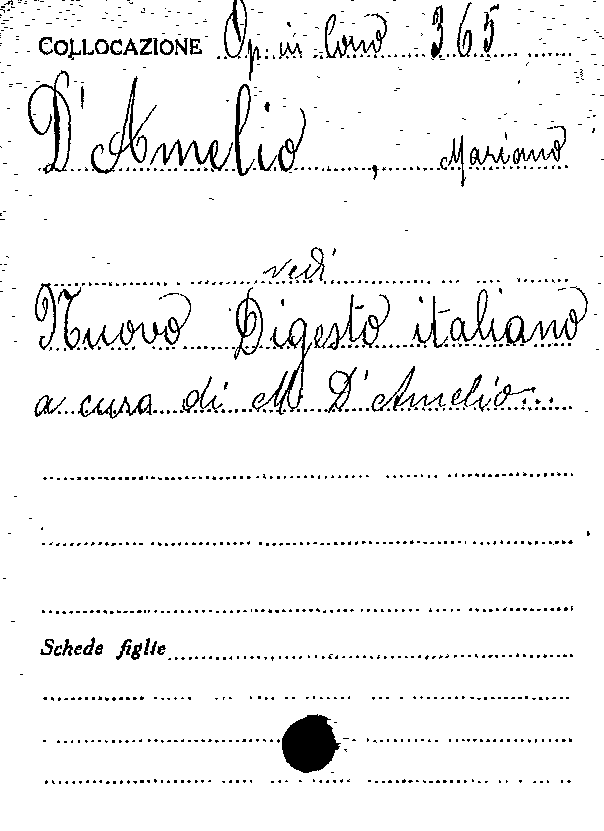 COLLOCAZIONE Op. in Cons 365
D'Amelio, Mariano
vedi
Nuovo Digesto italiano
a cura di M. D'Amelio...
Schede figlie